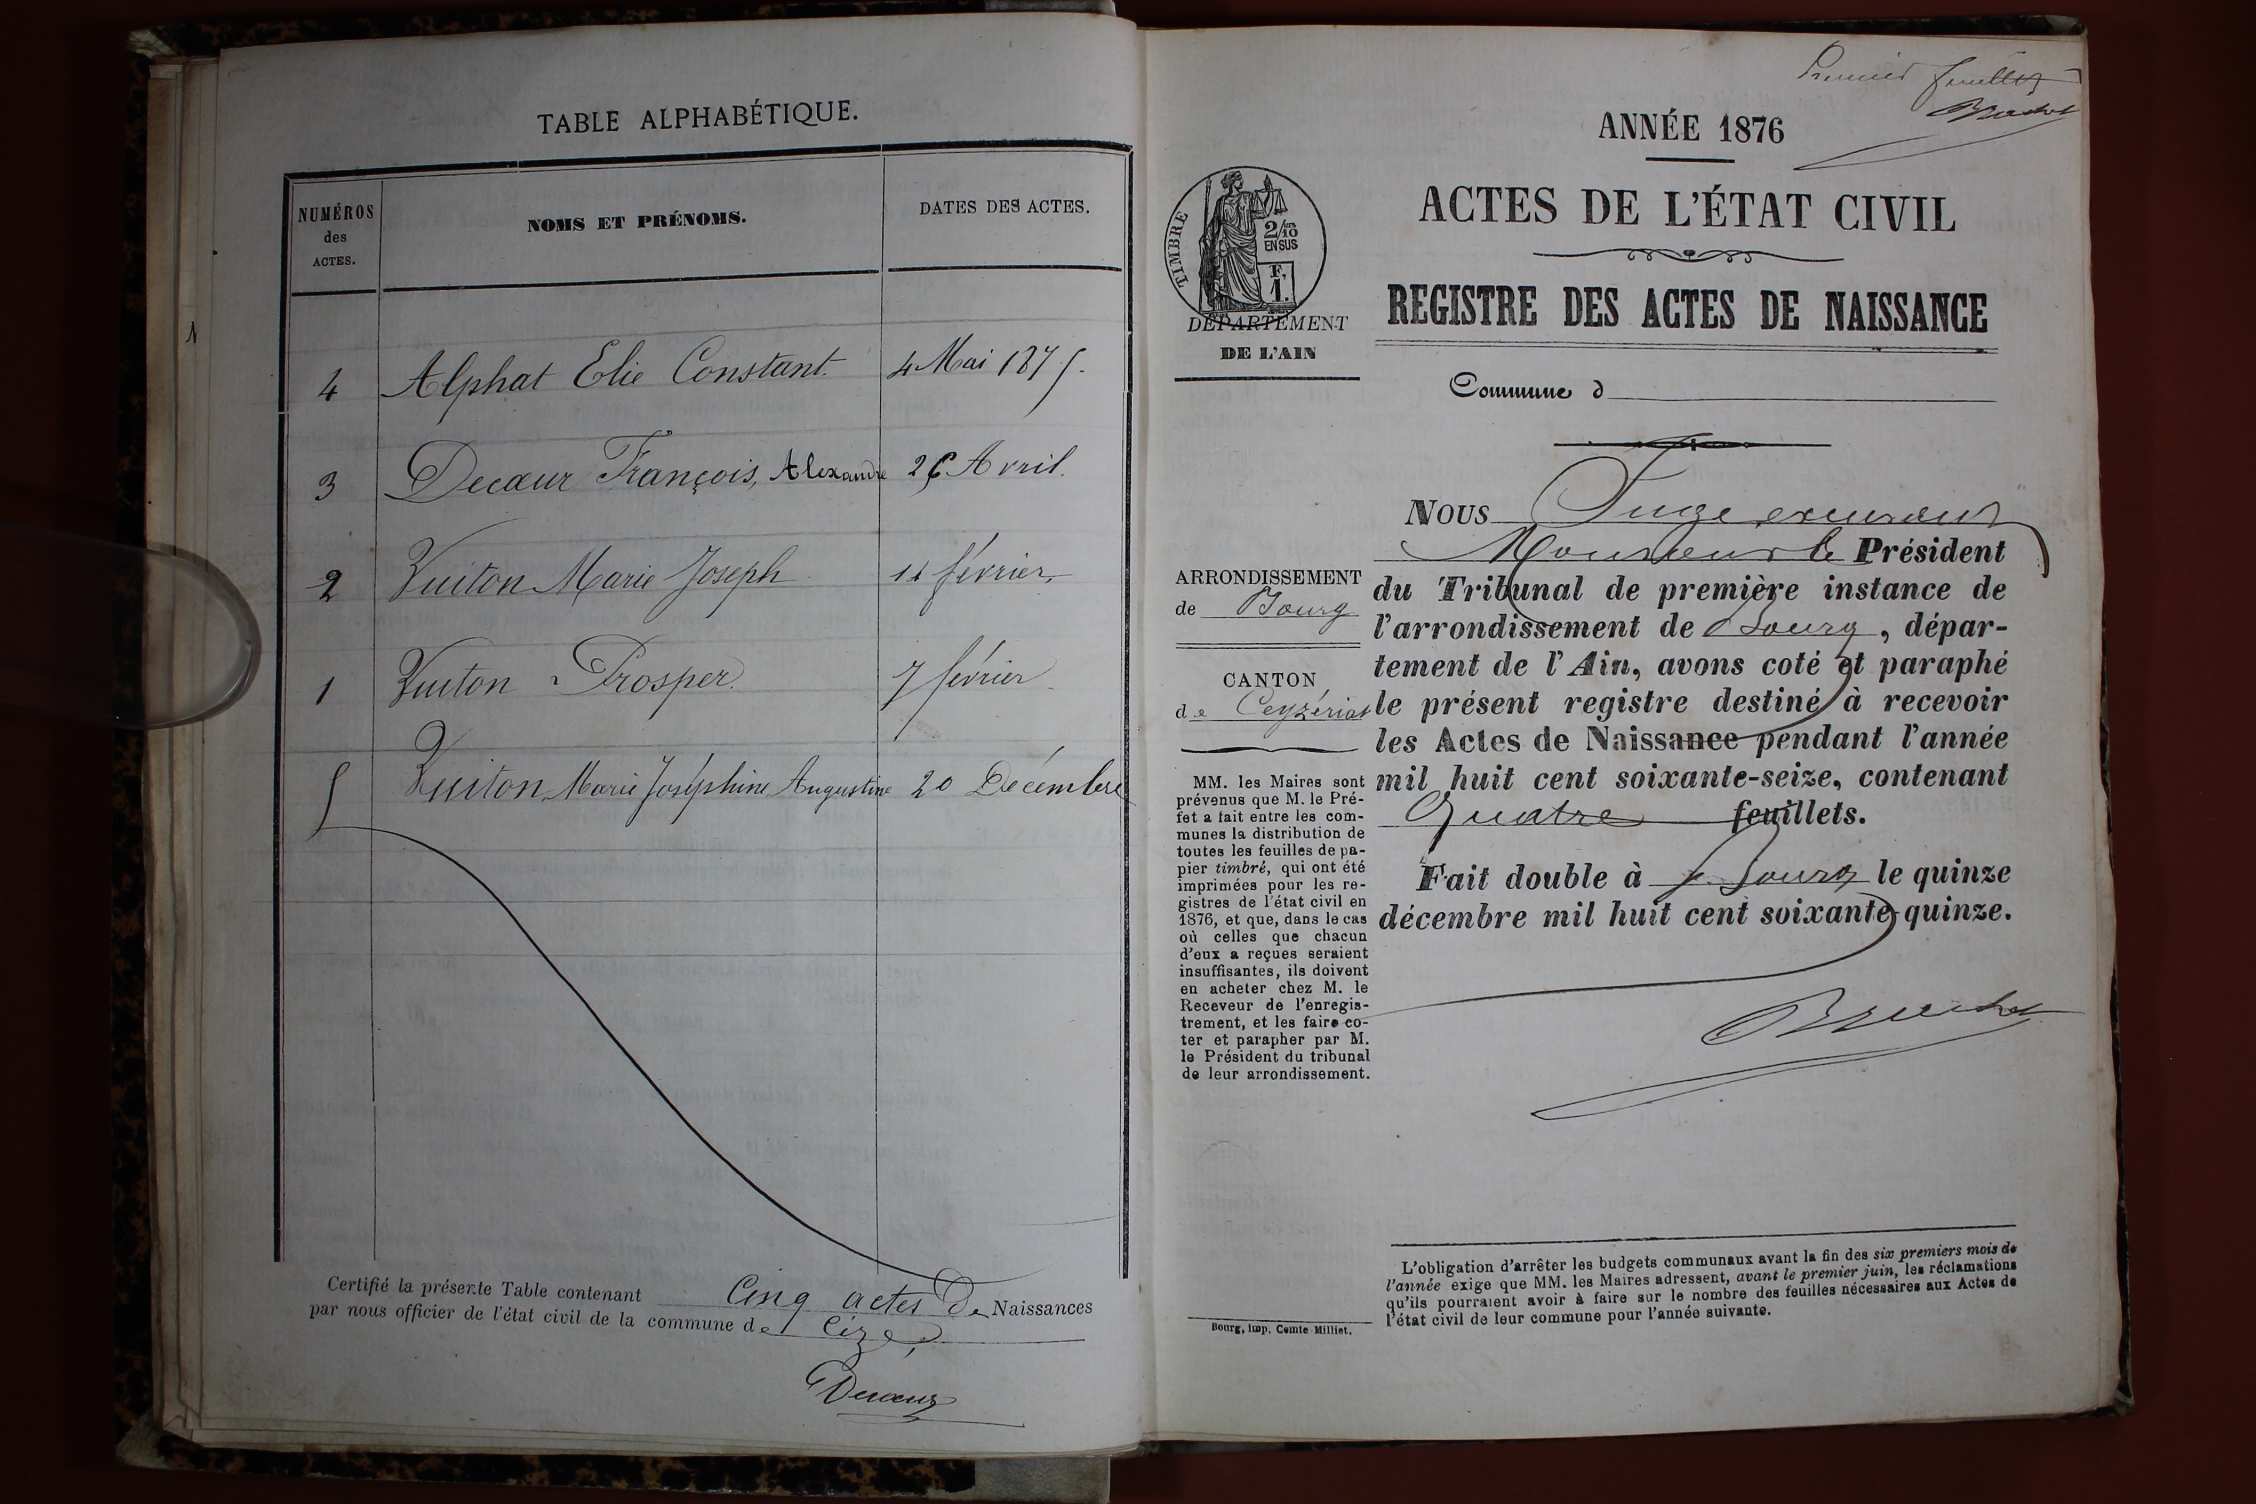 TABLE ALPHABÉTIQUE.
NUMÉROS
des
ACTES.
NOMS ET PRÉNOMS.
DATES DES ACTES.
4 Alphat Elie Constant. 4 Mai 1875.
3 Decœur François, Alexandre 26 Avril.
2 Vuiton Marie Joseph 11 février.
1 Vuiton Prosper. 7 février
5 Vuiton Marie Joséphine Augustine 20 Décembre
Certifié la présente Table contenant Cinq actes De Naissances
par nous officier de l'état civil de la commune de Cize,
Decœur
Premier feuillet
ANNÉE 1876
TIMBRE
2/10
EN SUS
F.
1.
ACTES DE L'ÉTAT CIVIL
REGISTRE DES ACTES DE NAISSANCE
DÉPARTEMENT
DE L'AIN
Commune d
ARRONDISSEMENT
de Bourg
CANTON
de Ceyzériat
MM. les Maires sont
prévenus que M. le Pré-
fet a fait entre les com-
munes la distribution de
toutes les feuilles de pa-
pier timbré, qui ont été
imprimées pour les re-
gistres de l'état civil en
1876, et que, dans le cas
où celles que chacun
d'eux a reçues seraient
insuffisantes, ils doivent
en acheter chez M. le
Receveur de l'enregis-
trement, et les faire co-
ter et parapher par M.
le Président du tribunal
de leur arrondissement.
Bourg, imp. Comte-Milliet.
NOUS Juge
Monsieur le Président
du Tribunal de première instance de
l'arrondissement de Bourg, dépar-
tement de l'Ain, avons coté et paraphé
le présent registre destiné à recevoir
les Actes de Naissance pendant l'année
mil huit cent soixante-seize, contenant
Quatre feuillets.
Fait double à Bourg le quinze
décembre mil huit cent soixante-quinze.
L'obligation d'arrêter les budgets communaux avant la fin des six premiers mois de
l'année exige que MM. les Maires adressent, avant le premier juin, les réclamations
qu'ils pourraient avoir à faire sur le nombre des feuilles nécessaires aux Actes de
l'état civil de leur commune pour l'année suivante.